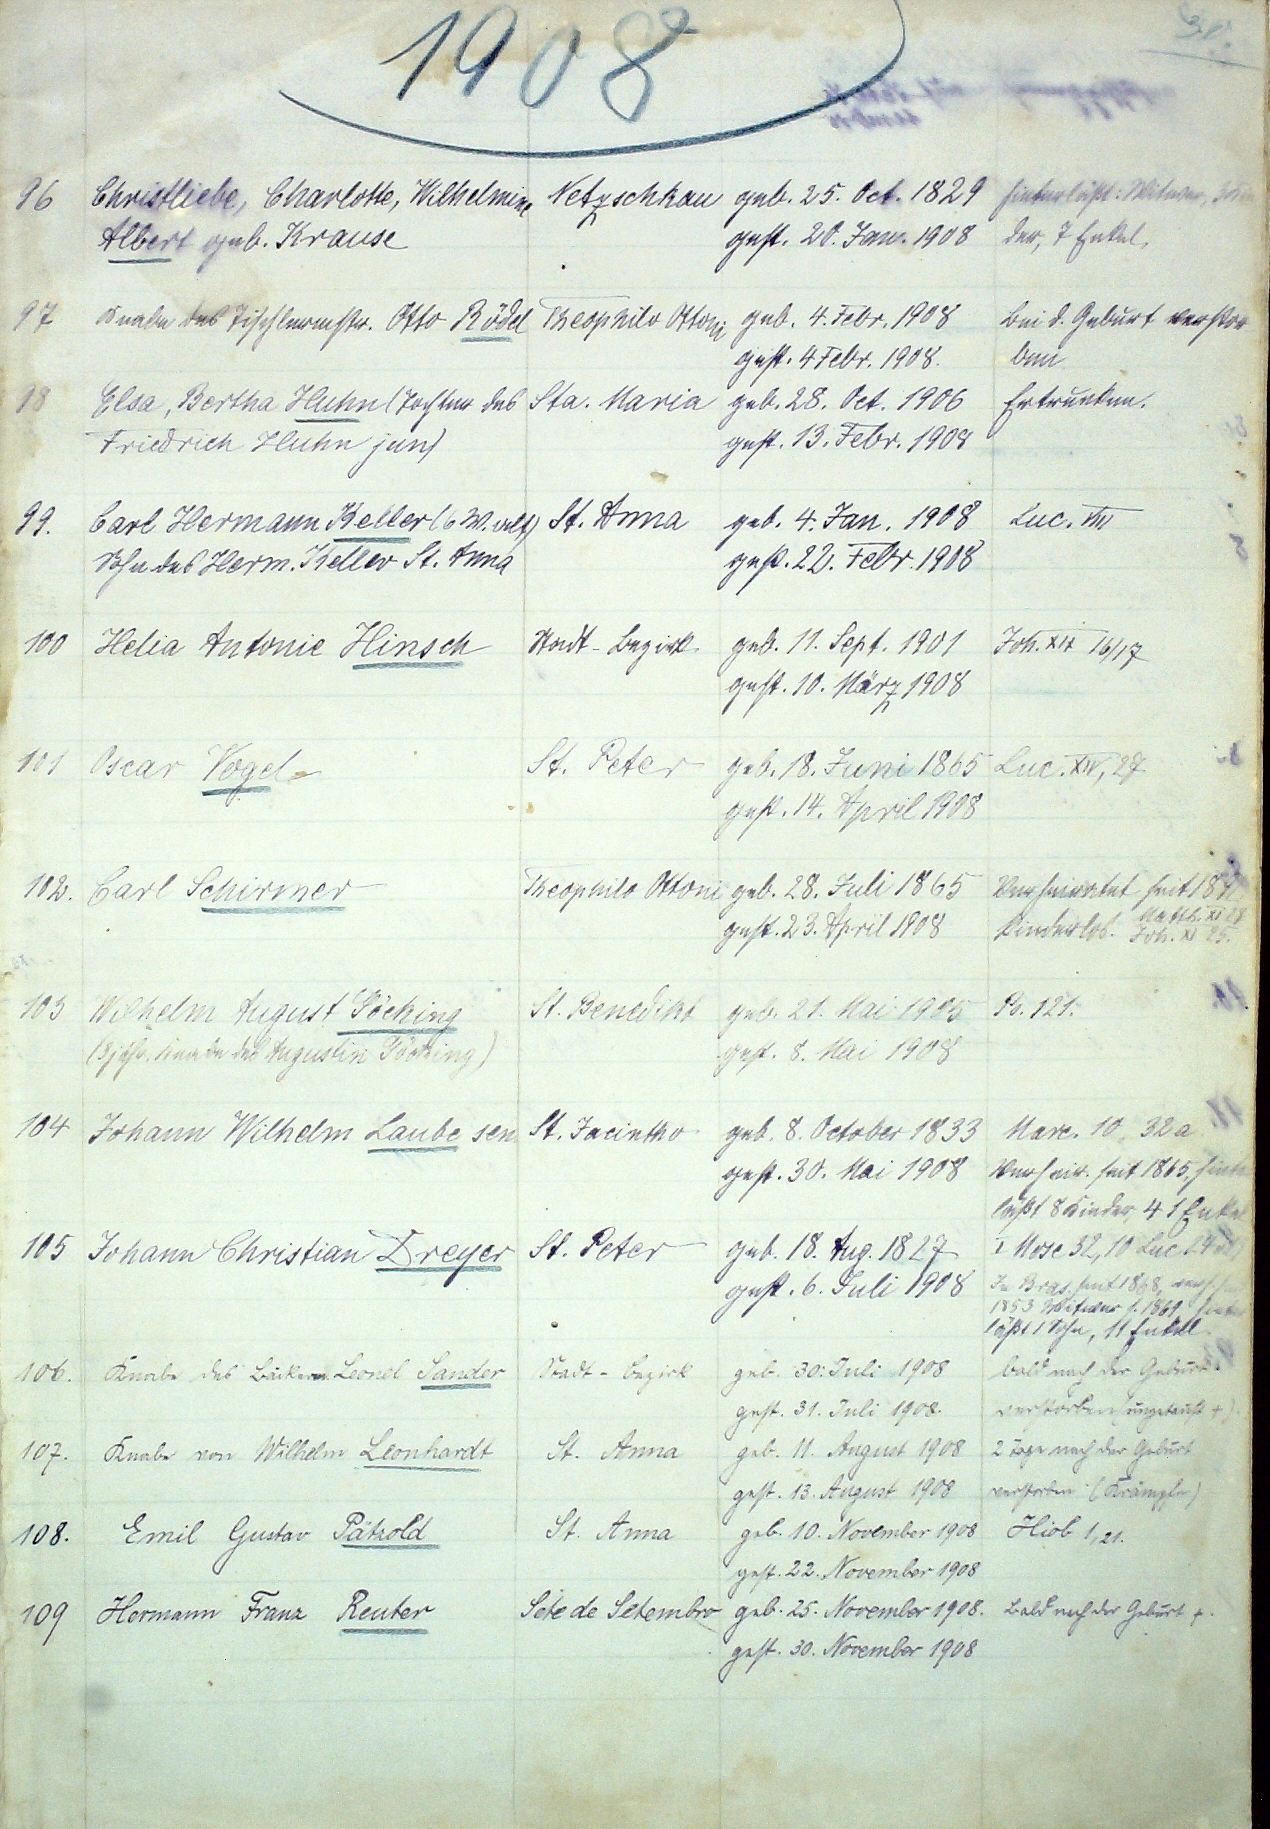 1908
96 Christliebe, Charlotte, Wilhelmine Netzschkau geb. 25. Oct. 1829 hinterläßt: Witwer, 3 Kin
Albert geb. Krause gest. 20. Jan. 1908 der, 7 Enkel.
97 Knabe des Tischlermstr. Otto Rödel Theophilo Ottoni geb. 4. Febr. 1908 Bei d. Geburt verstor
gest. 4 Febr. 1908. ben
98 Elsa, Bertha Huhn (Tochter des Sta. Maria geb. 28. Oct. 1906 Ertrunken.
Friedrich Huhn jun) gest. 13. Febr. 1908
99. Carl Hermann Keller (6 W. alt) St. Anna geb. 4. Jan. 1908 Luc. VII
Sohn des Herm. Keller St. Anna gest. 22. Febr. 1908
100 Helia Antonie Hinsch Stadt-Bezirk geb. 11. Sept. 1901 Joh. XIX 16/17
gest. 10. März 1908
101 Oscar Vogel St. Peter geb. 18. Juni 1865 Luc. XIV, 27
gest. 14. April 1908
102. Carl Schirmer Theophilo Ottoni geb. 28. Juli 1865 Verheiratet seit
gest. 23. April 1908 Kinderlos. Matth. XI 28
Joh. XI 25.
103 Wilhelm August Göcking St. Benedikt geb. 21. Mai 1905 Ps. 121.
(3jähr. Knabe des Augustin Göcking) gest. 8. Mai 1908
104 Johann Wilhelm Laube sen St. Jacintho geb. 8. October 1833 Marc. 10, 32a
gest. 30. Mai 1908 Verheir. seit 1865, hinter
läßt 8 Kinder, 41 Enkel
105 Johann Christian Dreyer St. Peter geb. 18. Aug. 1827 1 Mose 32, 10 Luc 24
gest. 6. Juli 1908 In Bras. seit 1868, verh.
1853 Witwer s. 1869 hinter
läßt 1 Sohn, 11 Enkel.
106. Knabe des Bäckers Leonel Sander Stadt-Bezirk geb. 30. Juli 1908 bald nach der Geburt
gest. 31. Juli 1908. verstorben (ungetauft +).
107. Knabe von Wilhelm Leonhardt St. Anna geb. 11. August 1908 2 Tage nach der Geburt
gest. 13. August 1908 verstorben (Krämpfe)
108. Emil Gustav Pätzold St. Anna geb. 10. November 1908 Hiob 1, 21.
gest. 22. November 1908
109 Hermann Franz Reuter Sete de Setembro geb. 25. November 1908. Bald nach der Geburt +.
gest. 30. November 1908